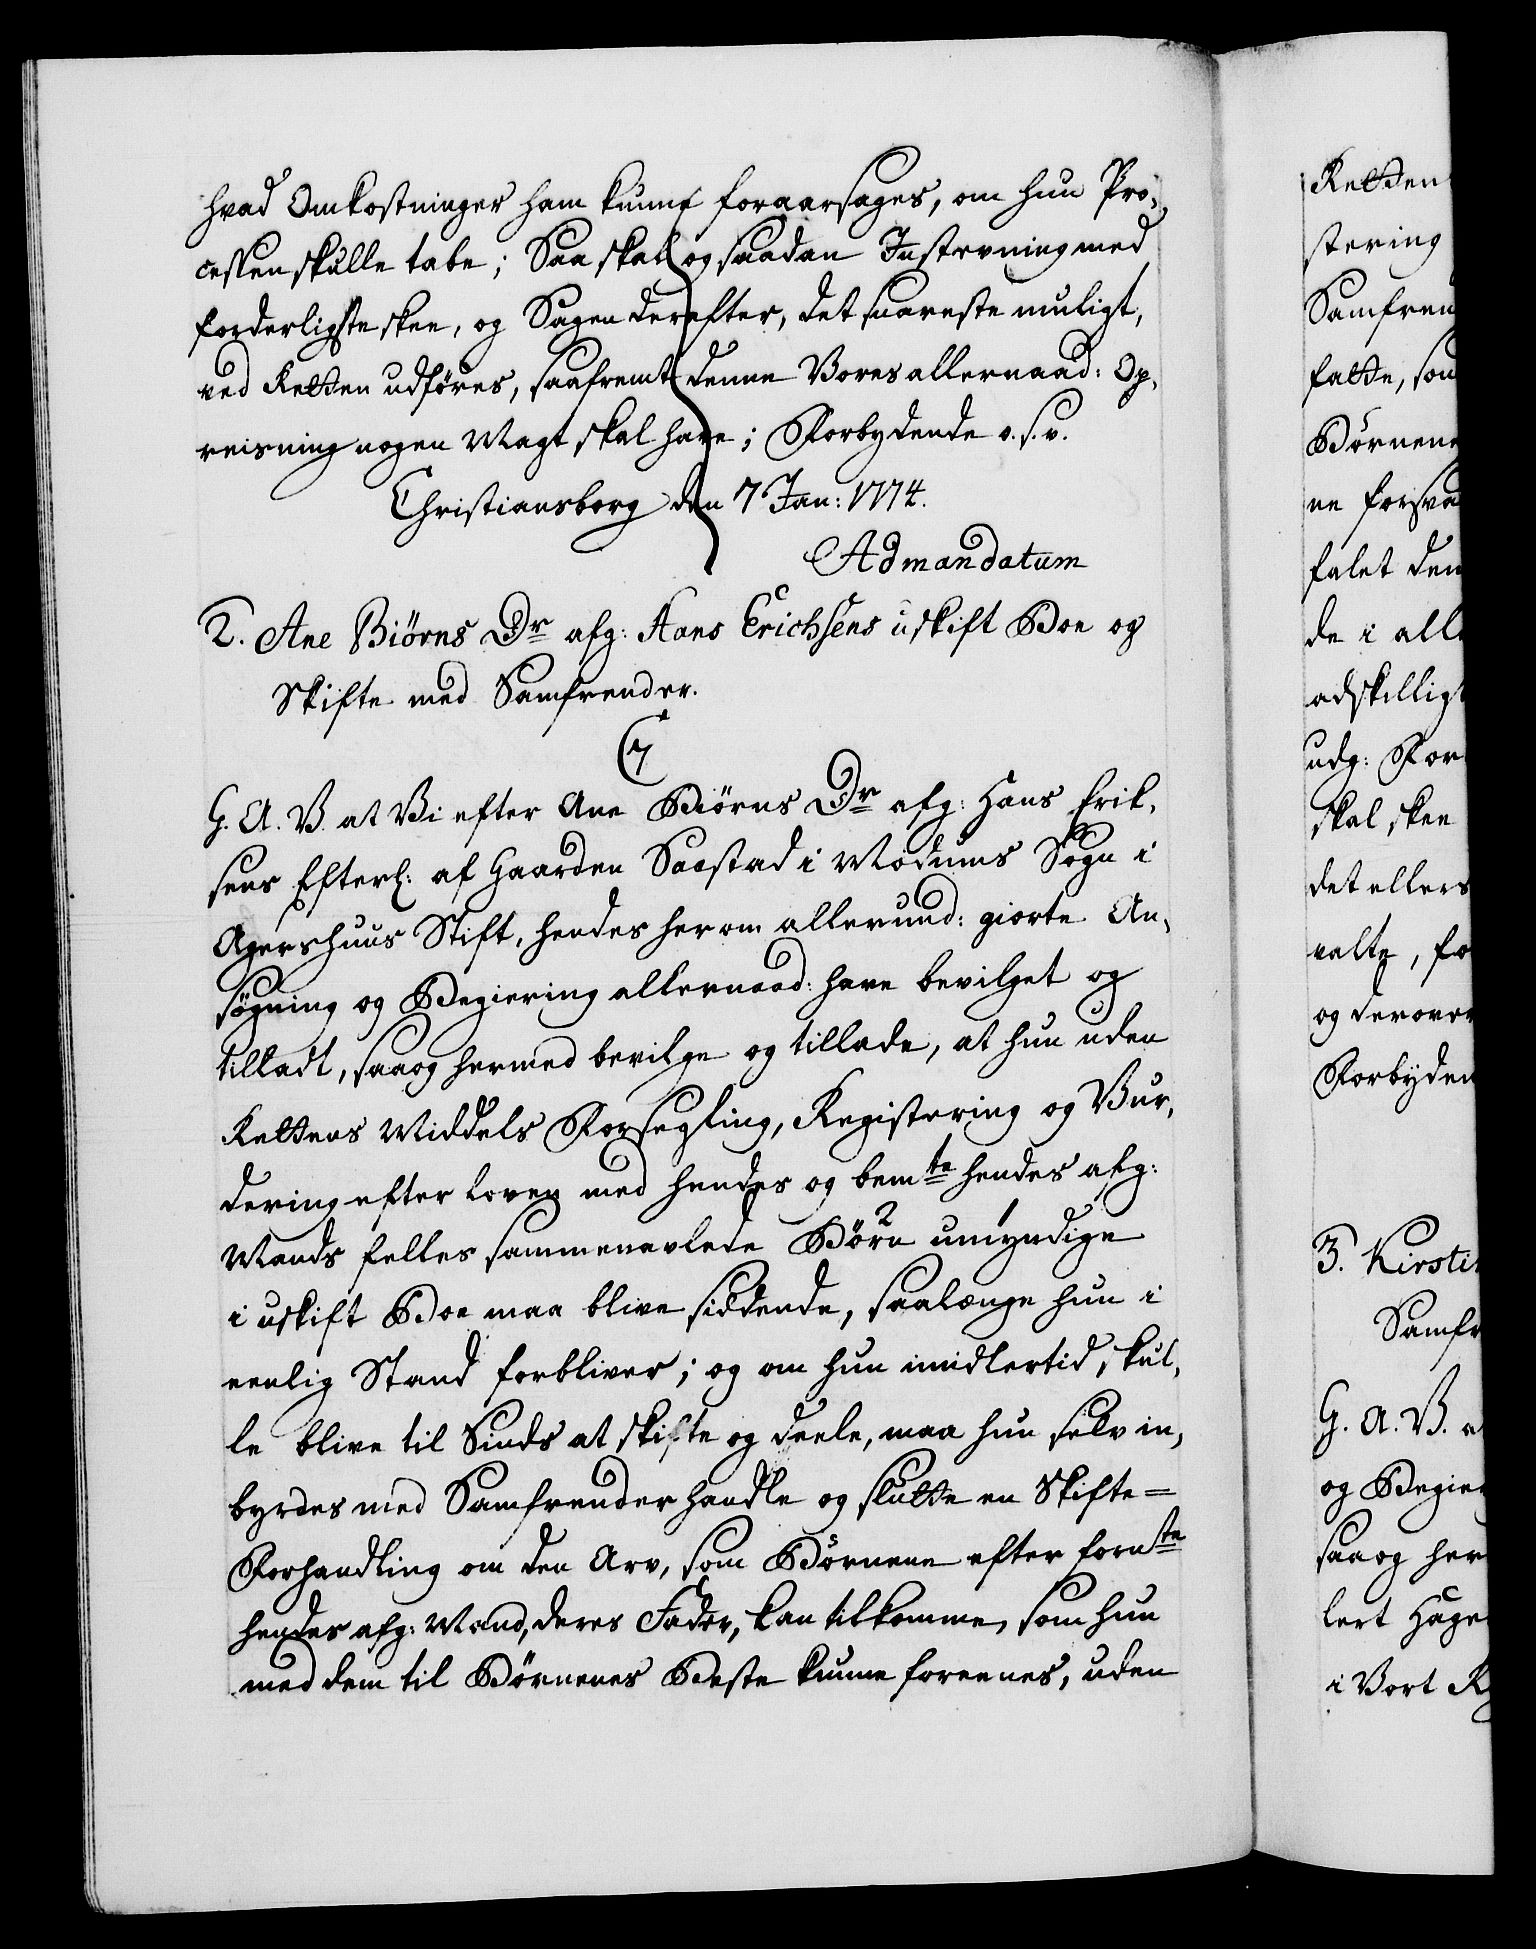 hvad Omkostninger ham kunne foraarsages, om hun Pro-
cessen skulle tabe; Saa skal og saadan Instevning med
forderligste skee, og Sagen derefter, det snareste muligt,
ved Retten udføres, saafremt denne Vores allernaad: Op-
reisning nogen Magt skal have; Forbydende o. s. v.
Christiansborg den 7 Jan: 1774.
Ad mandatum
2. Ane Biørns Dr afg: Hans Erichsens uskift Boe og
Skifte med Samfrender.
C7
G. A. V. at Vi efter Ane Biørns Dr afg: Hans Erik-
sens Efterl: af Gaarden Saastad i Modums Sogn i
Agershuus Stift, hendes herom allerund: giorte An-
søgning og Begiering allernaad: have bevilget og
tilladt, saa og hermed bevilge og tillade, at hun uden
Rettens Middels Forsegling, Registering og Vur-
dering efter Loven med hendes og bemte hendes afg:
Mands felles sammenavlede Børn umyndige
i uskift Boe maa blive siddende, saalænge hun i
eenlig Stand forbliver; og om hun imidlertid skul-
le blive til Sinds at skifte og deele, maa hun selv in-
byrdes med Samfrender handle og slutte en Skifte-
Forhandling om den Arv, som Børnene efter fornte
hendes afg: Mand, deres Fader, kan tilkomme, som hun
med dem til Børnenes Beste kunne foreenes, uden
Retten
stering
Samfren
fatte, som
Børnene
ne forsva
falet den
de i alle
adskilligt
udg: For
skal skee
det ellers
valte, fo
og derover
Forbyden
3. Kirsti
Samfr
G. A. V. a
og Begier
saa og her
lert Hage
i Vort R